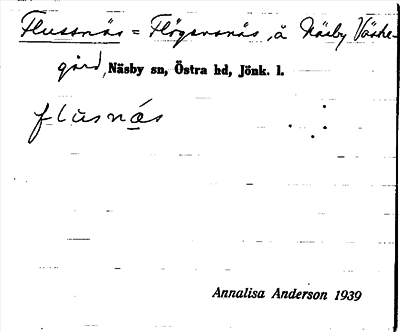 Flussnäs = Flögsnäs, å Näsby Väste-
gård, Näsby sn, Östra hd, Jönk. l.
flusnäs
Annalisa Anderson 1939